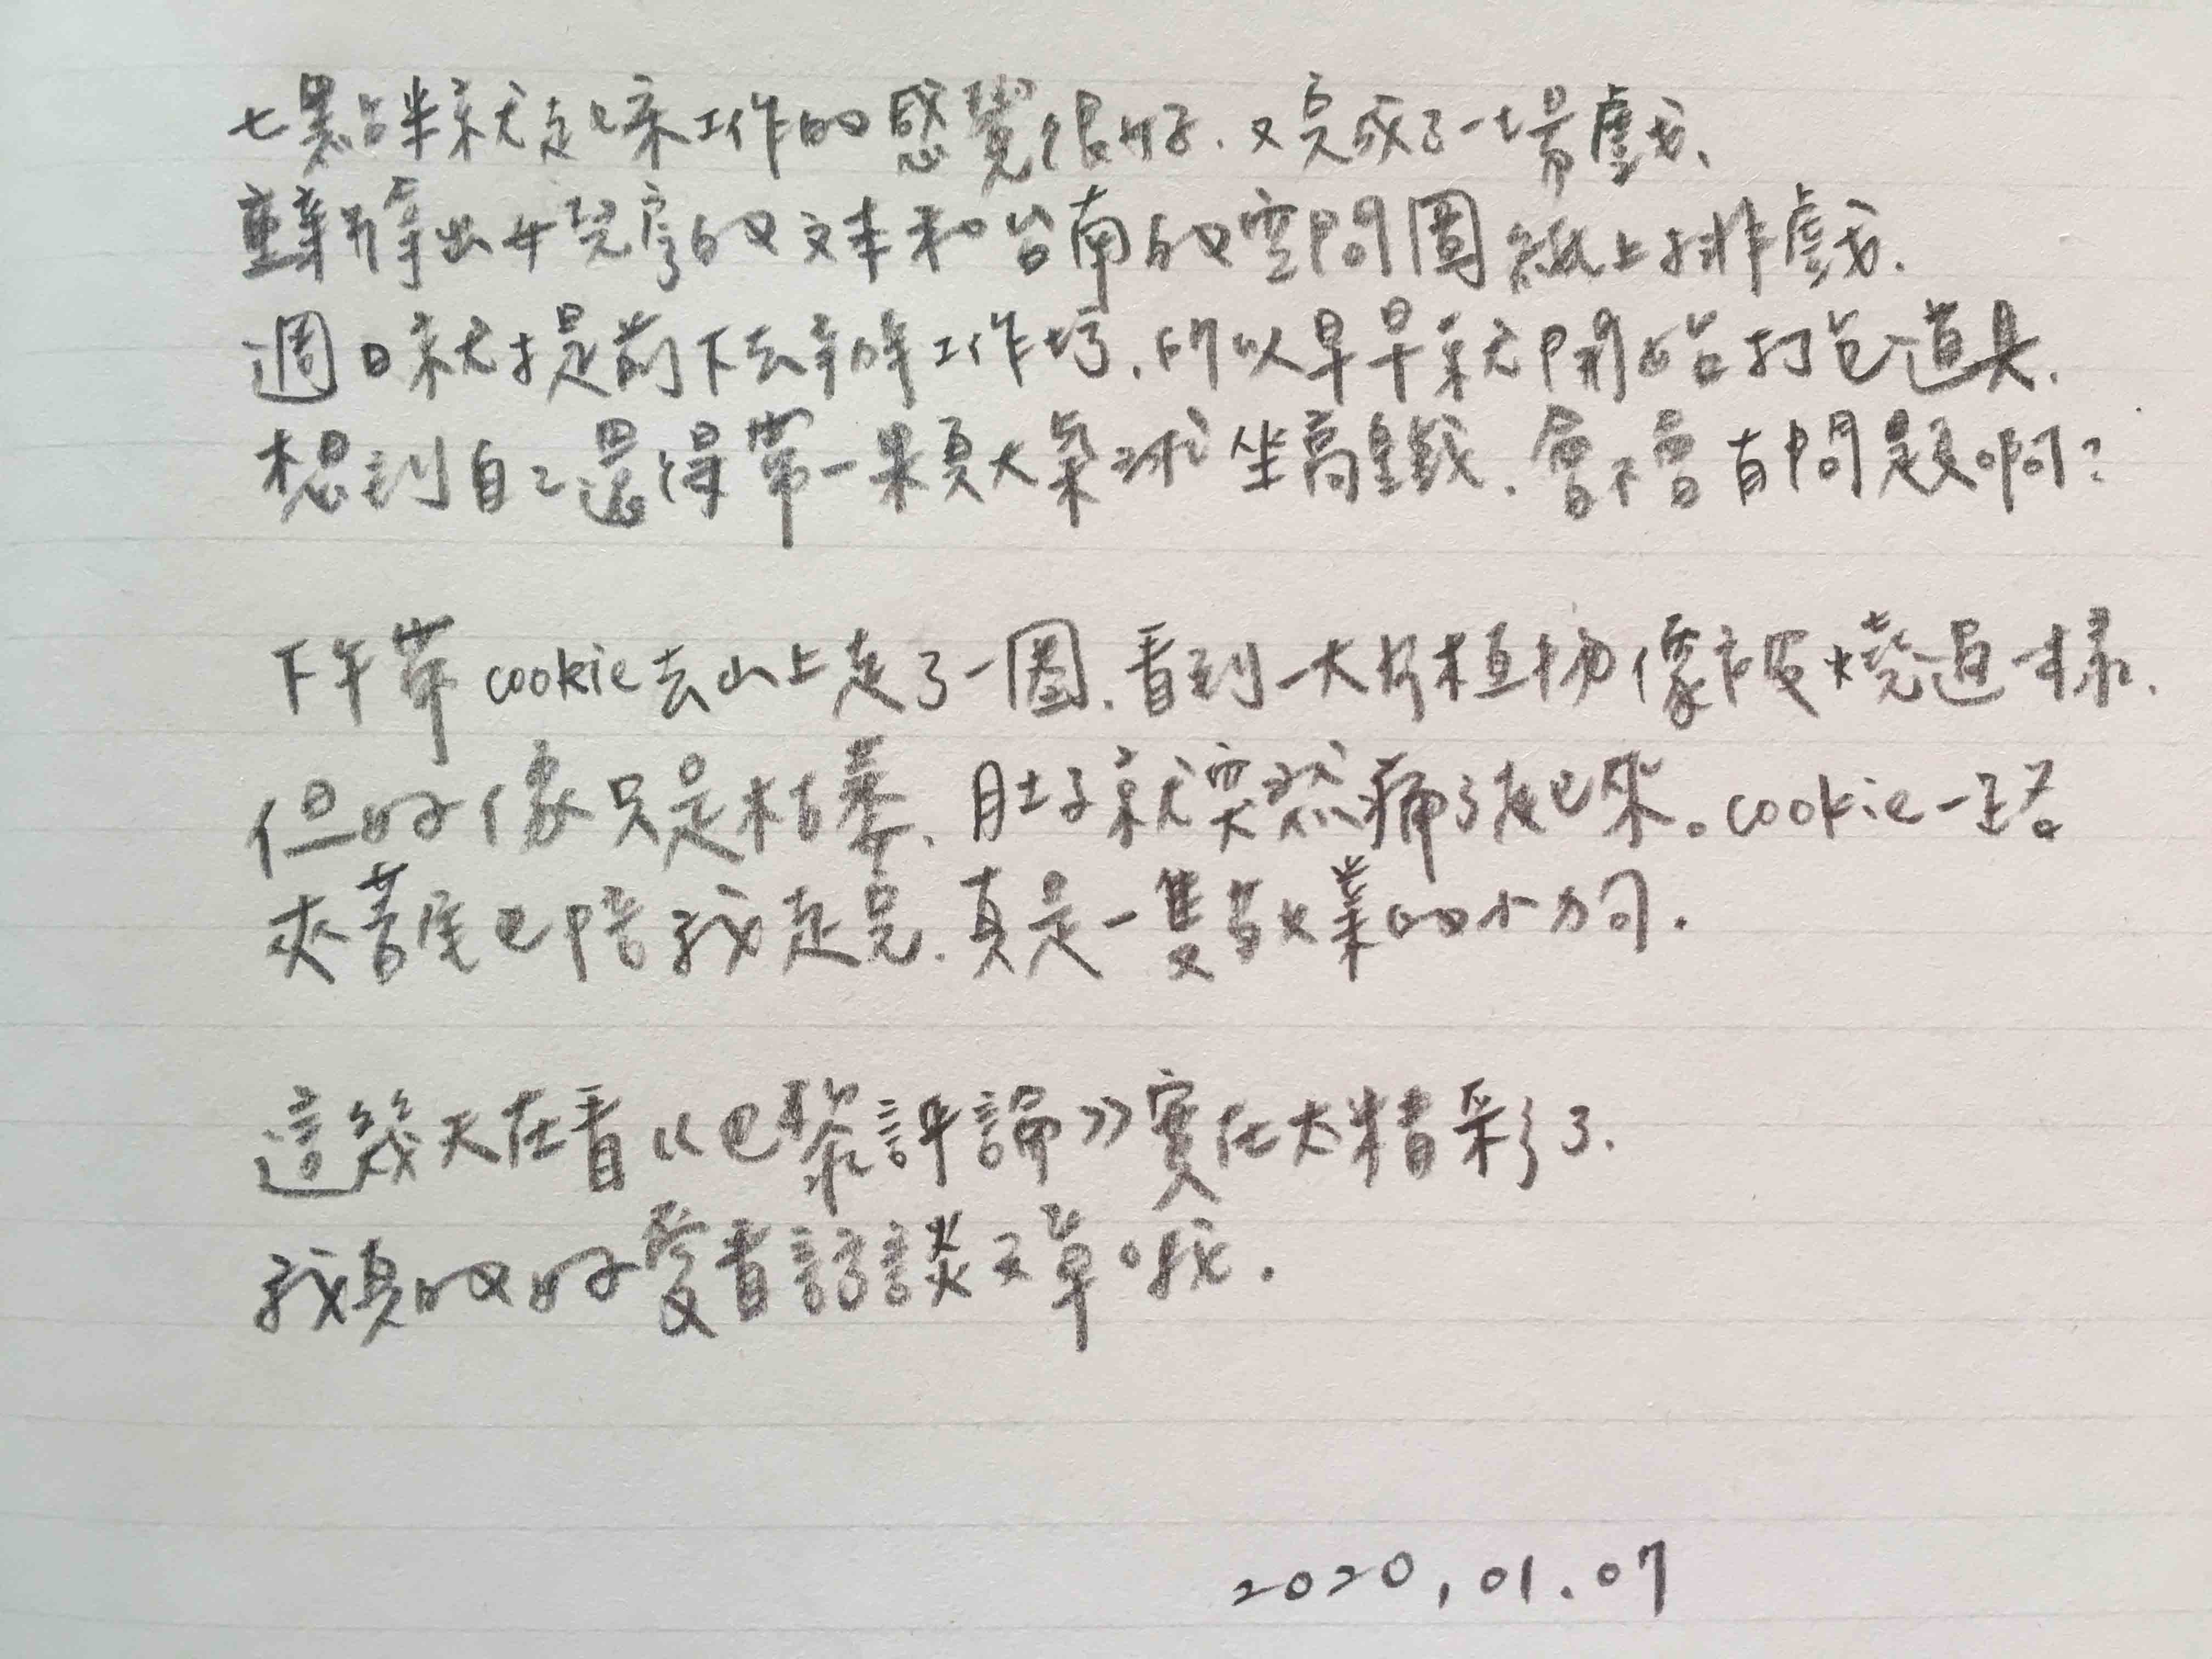 七點半就起床工作的感覺很好．又完成了一場戲、
重新拿出女兒房的文本和台南的空間圖紙上排戲．
週日就提前下去辦工作坊．所以早早就開始打包道具．
想到自己還得帶一顆大氣球坐高鐵．會不會有問題啊？
下午帶cookie去山上走了一圈．看到一大片植物像被燒過一樣．
但好像只是枯萎．肚子就突然痛了起來。cookie一路
夾著尾巴陪我走完．真是一隻敬業的小狗．
這幾天在看《巴黎評論》實在太精彩了．
我真的好愛看訪談文章哦．
2020.01.07